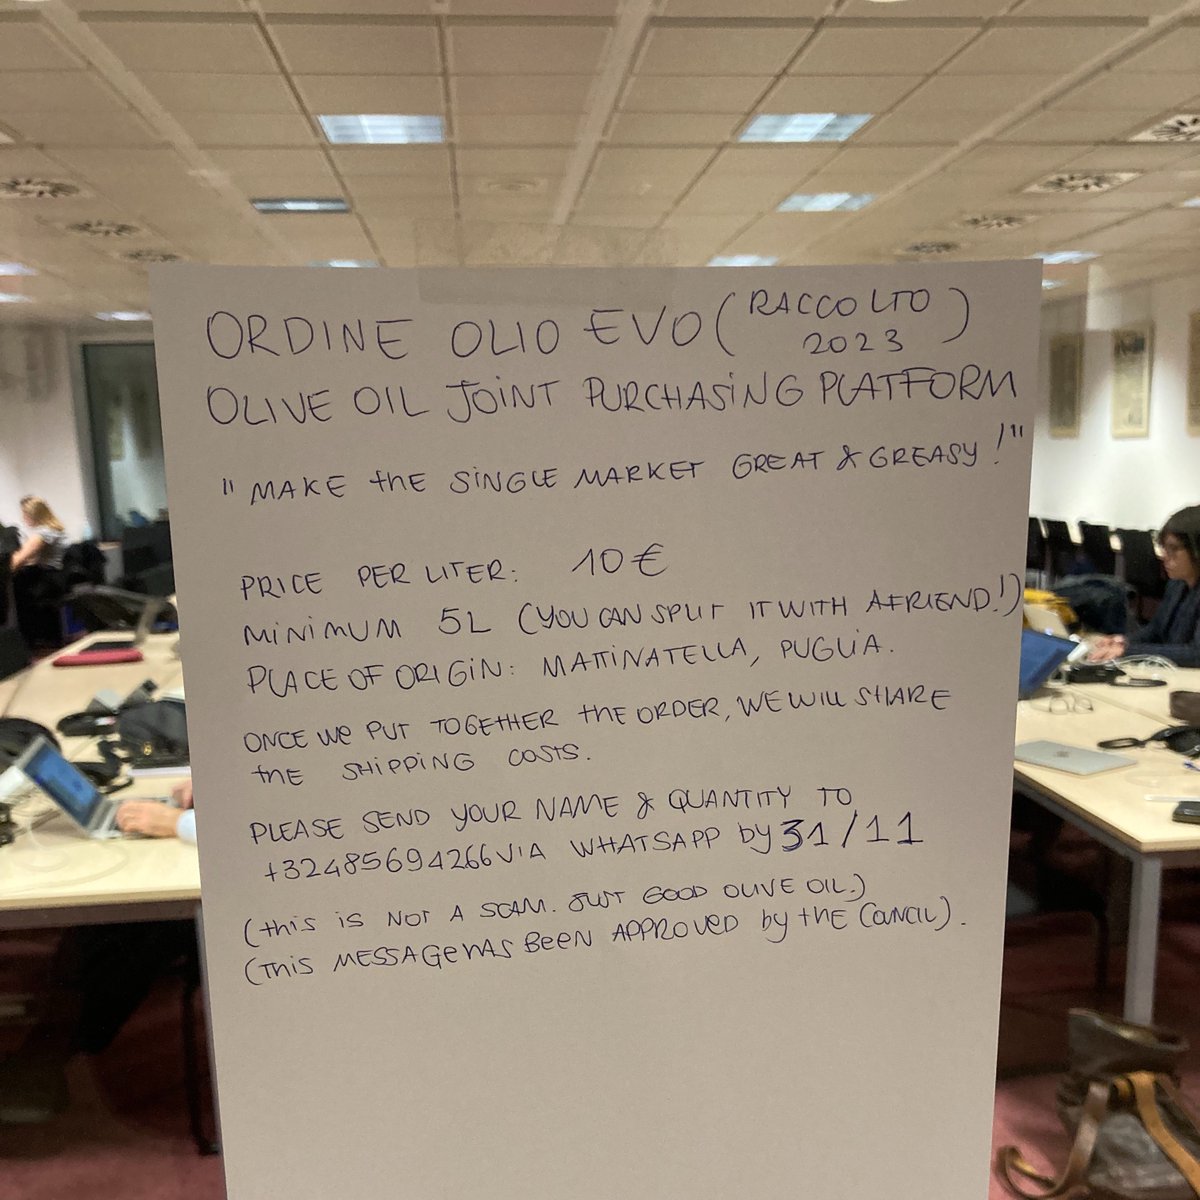 ORDINE OLIO EVO (RACCOLTO 2023)
OLIVE OIL JOINT PURCHASING PLATFORM
" MAKE the SINGLE MARKET GREAT & GREASY!"
PRICE PER LITER: 10€
MINIMUM 5L (YOU CAN SPLIT IT WITH A FRIEND!)
PLACE OF ORIGIN: MATTINATELLA, PUGLIA.
ONCE WE PUT TOGETHER the ORDER, WE WILL SHARE
the SHIPPING COSTS.
PLEASE SEND YOUR NAME & QUANTITY TO
+32485694266 VIA WHATSAPP by 31/11
(this is NOT A SCAM. JUST GOOD OLIVE OIL.)
(THIS MESSAGE HAS BEEN APPROVED by the COUNCIL).